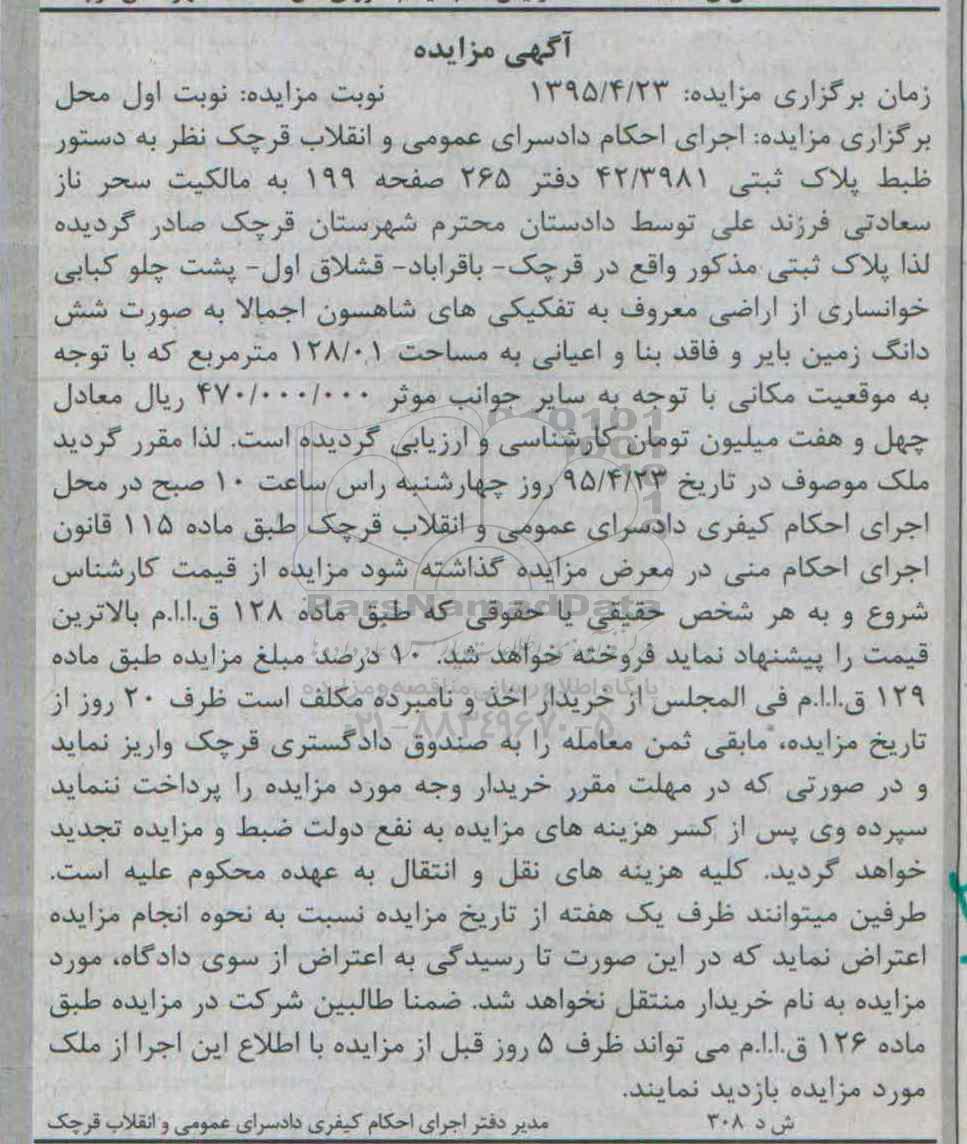 آگهی مزایده
زمان برگزاری مزایده: ۱۳۹۵/۴/۲۳ نوبت مزایده: نوبت اول محل
برگزاری مزایده: اجرای احکام دادسرای عمومی و انقلاب قرچک نظر به دستور
ظبط پلاک ثبتی ۴۲/۳۹۸۱ دفتر ۲۶۵ صفحه ۱۹۹ به مالکیت سحر ناز
سعادتی فرزند علی توسط دادستان محترم شهرستان قرچک صادر گردیده
لذا پلاک ثبتی مذکور واقع در قرچک- باقراباد- قشلاق اول- پشت چلو کبابی
خوانساری از اراضی معروف به تفکیکی های شاهسون اجمالا به صورت شش
دانگ زمین بایر و فاقد بنا و اعیانی به مساحت ۱۲۸/۰۱ مترمربع که با توجه
به موقعیت مکانی با توجه به سایر جوانب موثر ۴۷۰/۰۰۰/۰۰۰ ریال معادل
چهل و هفت میلیون تومان کارشناسی و ارزیابی گردیده است. لذا مقرر گردید
ملک موصوف در تاریخ ۹۵/۴/۲۳ روز چهارشنبه راس ساعت ۱۰ صبح در محل
اجرای احکام کیفری دادسرای عمومی و انقلاب قرچک طبق ماده ۱۱۵ قانون
اجرای احکام منی در معرض مزایده گذاشته شود مزایده از قیمت کارشناس
شروع و به هر شخص حقیقی یا حقوقی که طبق ماده ۱۲۸ ق.ا.ا.م بالاترین
قیمت را پیشنهاد نماید فروخته خواهد شد. ۱۰ درصد مبلغ مزایده طبق ماده
۱۲۹ ق.ا.ا.م فی المجلس از خریدار اخذ و نامبرده مکلف است ظرف ۲۰ روز از
تاریخ مزایده، مابقی ثمن معامله را به صندوق دادگستری قرچک واریز نماید
و در صورتی که در مهلت مقرر خریدار وجه مورد مزایده را پرداخت ننماید
سپرده وی پس از کسر هزینه های مزایده به نفع دولت ضبط و مزایده تجدید
خواهد گردید. کلیه هزینه های نقل و انتقال به عهده محکوم علیه است.
طرفین میتوانند ظرف یک هفته از تاریخ مزایده نسبت به نحوه انجام مزایده
اعتراض نماید که در این صورت تا رسیدگی به اعتراض از سوی دادگاه، مورد
مزایده به نام خریدار منتقل نخواهد شد. ضمنا طالبین شرکت در مزایده طبق
ماده ۱۲۶ ق.ا.ا.م می تواند ظرف ۵ روز قبل از مزایده با اطلاع این اجرا از ملک
مورد مزایده بازدید نمایند.
ش د ۳۰۸ مدیر دفتر اجرای احکام کیفری دادسرای عمومی و انقلاب قرچک
ParsNamadData
پایگاه اطلاع رسانی مناقصه و مزایده
۰۲۱-۸۸۳۴۹۶۷۰-۵